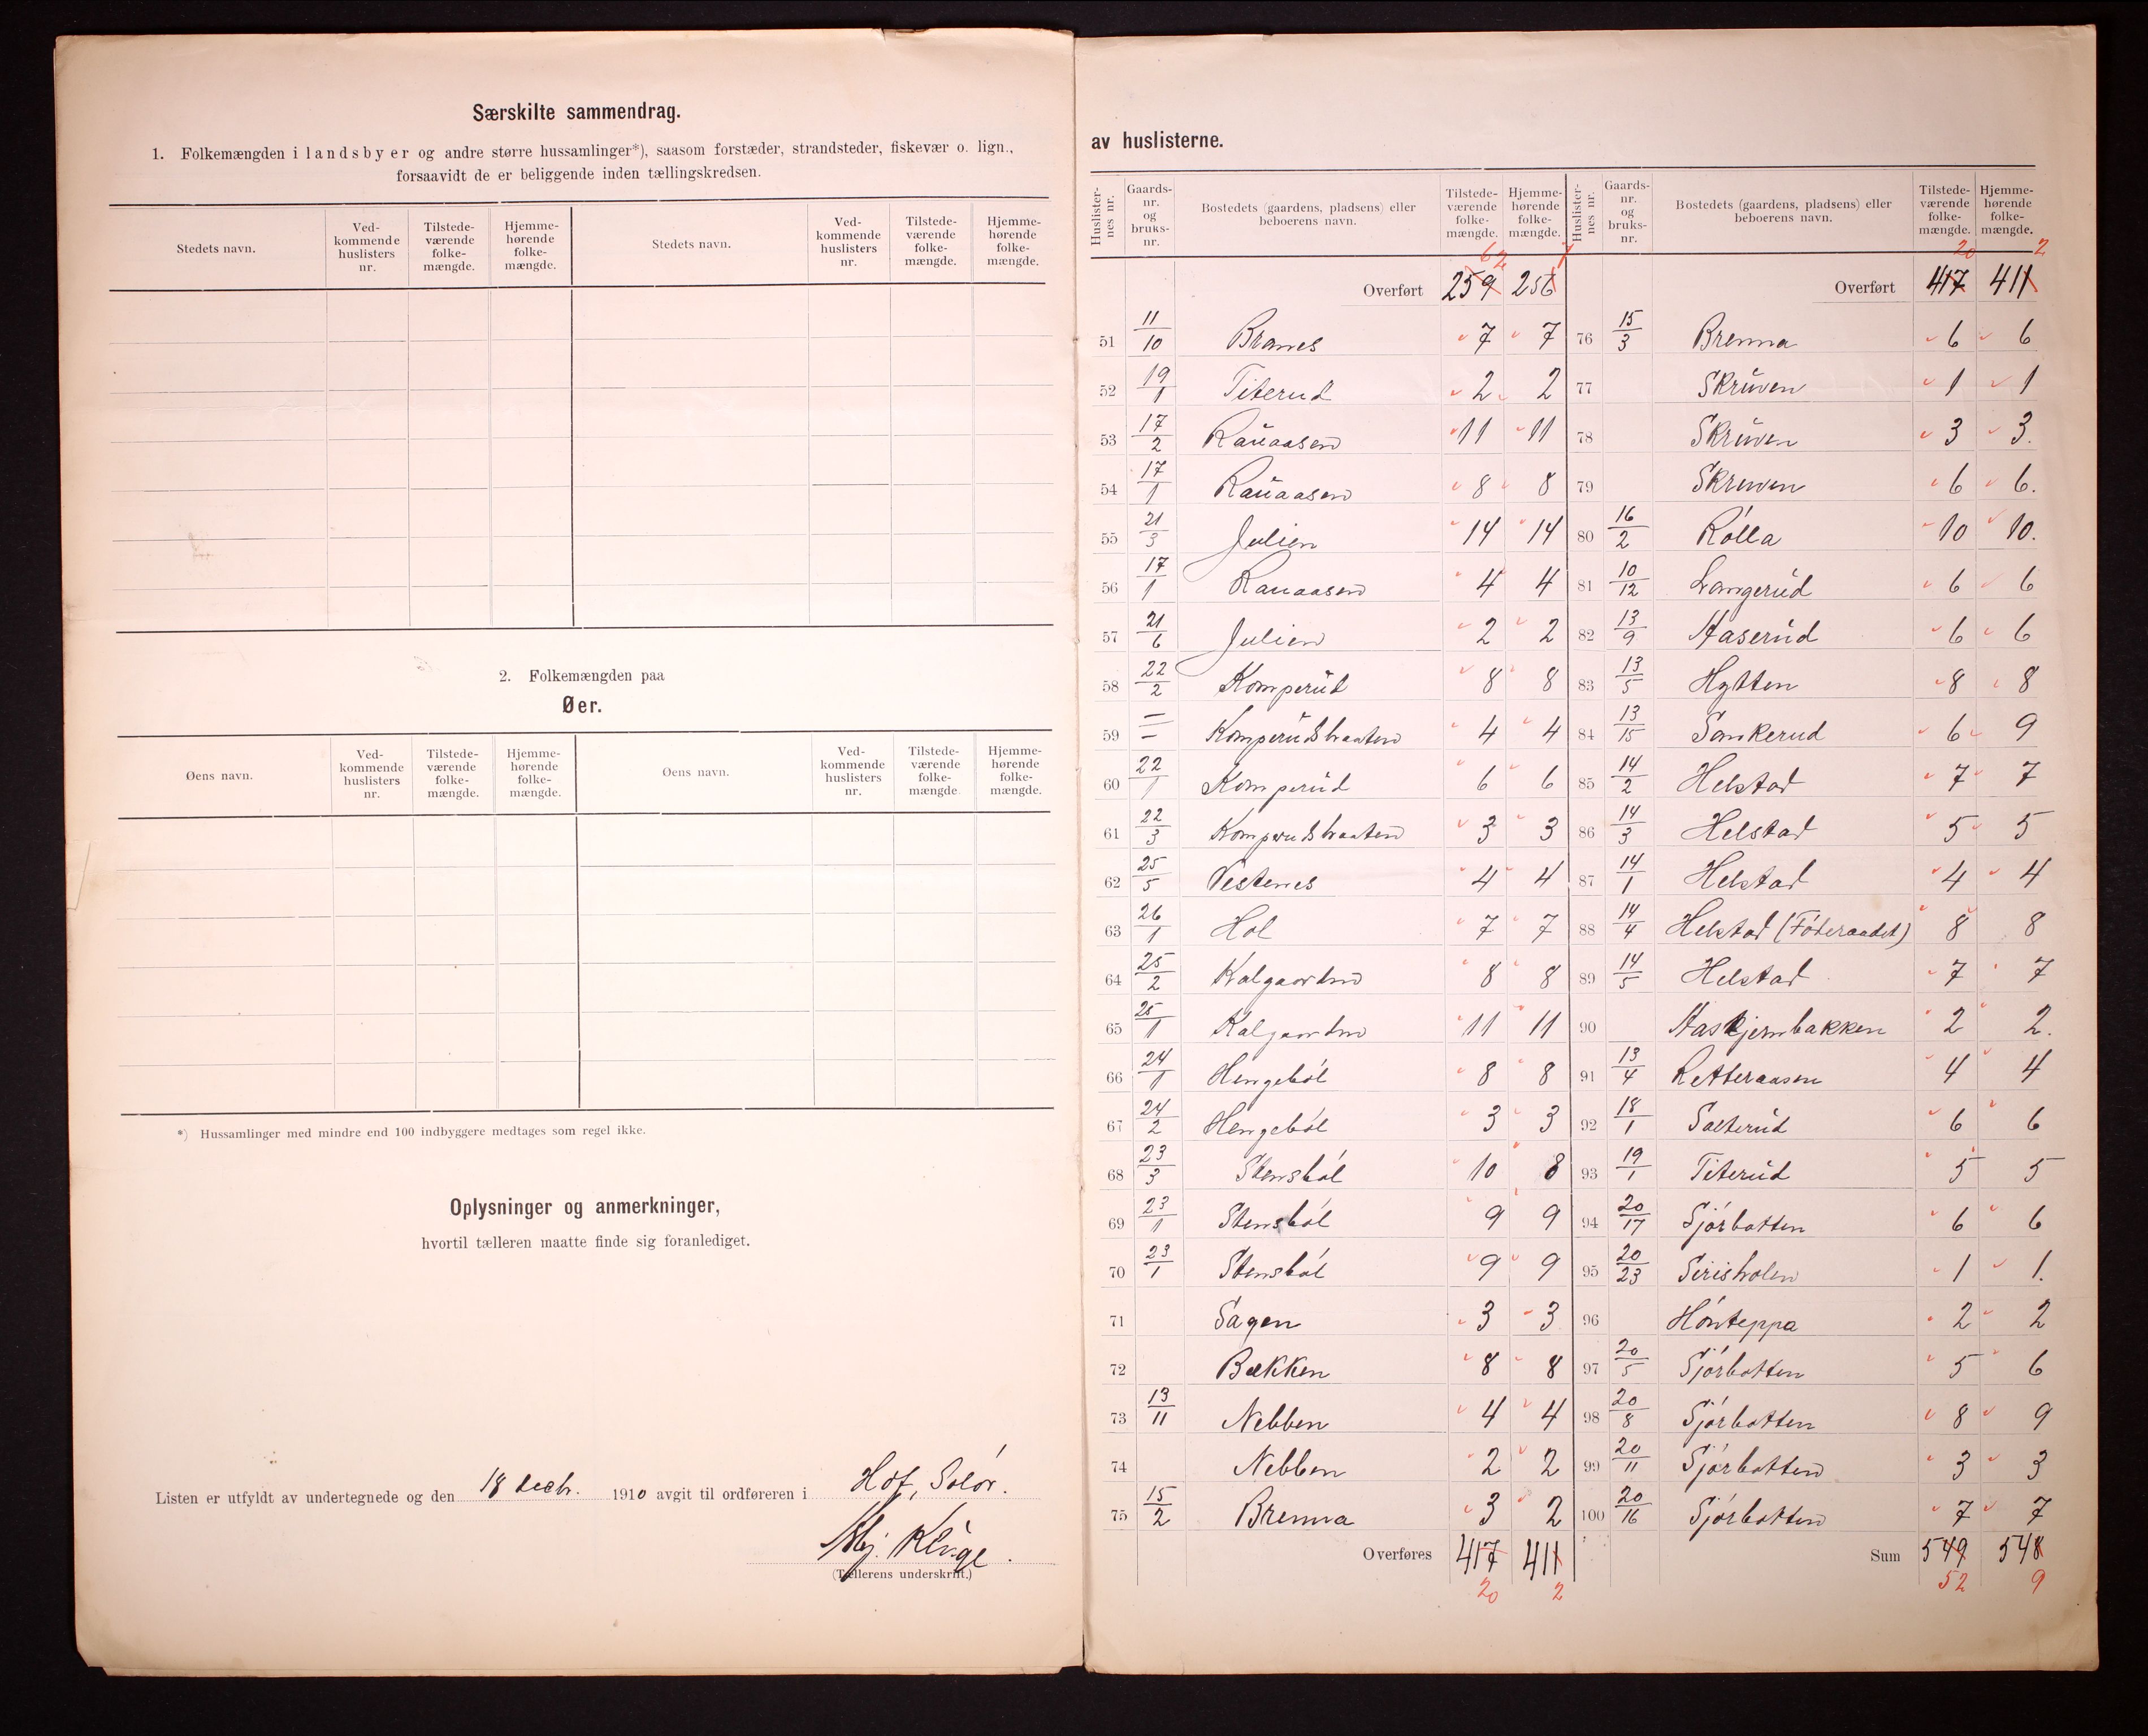 Særskilte sammendrag.
1. Folkemængden i landsbyer og andre større hussamlinger*), saasom forstæder, strandsteder, fiskevær o. lign.,
forsaavidt de er beliggende inden tællingskredsen.
Stedets navn. Ved-kommende huslisters nr. Tilstede-værende folke-mængde. Hjemme-hørende folke-mængde. Stedets navn. Ved-kommende huslisters nr. Tilstede-værende folke-mængde. Hjemme-hørende folke-mængde.
2. Folkemængden paa
Øer.
Øens navn. Ved-kommende huslisters nr. Tilstede-værende folke-mængde. Hjemme-hørende folke-mængde. Øens navn. Ved-kommende huslisters nr. Tilstede-værende folke-mængde Hjemme-hørende folke-mængde.
*) Hussamlinger med mindre end 100 indbyggere medtages som regel ikke.
Oplysninger og anmerkninger,
hvortil tælleren maatte finde sig foranlediget.
Listen er utfyldt av undertegnede og den 18 decbr. 1910 avgit til ordføreren i Hof, Solør.
Kl&oslash;ge.
(Tællerens underskrift.)
av huslisterne.
Huslister-nes nr. Gaards-nr. og bruks-nr. Bostedets (gaardens, pladsens) eller beboerens navn. Tilstede-værende folke-mængde. Hjemme-hørende folke-mængde. Huslister-nes nr. Gaards-nr. og bruks-nr. Bostedets (gaardens, pladsens) eller beboerens navn. Tilstede-værende folke-mængde. Hjemme-hørende folke-mængde.
62 7 20 2
Overført 259 256 Overført 417 411
51 11/10 Branes 7 7 76 15/3 Brenna 6 6
52 19/1 Titerud 2 2 77 Skruven 1 1
53 17/2 Rauaasen 11 11 78 Skruven 3 3.
54 17/1 Rauaasen 8 8 79 Skruven 6 6.
55 21/3 Julien 14 14 80 16/2 Rólla 10 10.
56 17/1 Rauaasen 4 4 81 10/12 Langerud 6 6
57 21/6 Julien 2 2 82 13/9 Aaserud 6 6
58 22/2 Komperud 8 8 83 13/5 Hytten 8 8
59 = Komperudsbraaten 4 4 84 13/15 Sankerud 6 9
60 22/1 Komperud 6 6 85 14/2 Helstad 7 7
61 22/3 Komperudsbraaten 3 3 86 14/3 Helstad 5 5
62 25/5 Vestenes 4 4 87 14/1 Helstad 4 4
63 26/1 Hol 7 7 88 14/4 Helstad (Föderaadet) 8 8
64 25/2 Kalgaarden 8 8 89 14/5 Helstad 7 7
65 25/1 Kalgaarden 11 11 90 Aaskjernbakken 2 2.
66 24/1 Hengeból 8 8 91 13/4 Retteraasen 4 4
67 24/2 Hengeból 3 3 92 18/1 Sæterud 6 6
68 23/3 Stensból 10 8 93 19/1 Titerud 5 5
69 23/1 Stensból 9 9 94 20/17 Sjórbotten 6 6
70 23/1 Stensból 9 9 95 20/23 Sirisholen 1 1.
71 Sagen 3 3 96 Hónteppa 2 2
72 Bækken 8 8 97 20/5 Sjórbotten 5 6
73 13/11 Nebben 4 4 98 20/8 Sjórbotten 8 9
74 Nebben 2 2 99 20/11 Sjórbotten 3 3
75 15/2 Brenna 3 2 100 20/16 Sjórbotten 7 7
Overføres 417 411 Sum 549 548
20 2 52 9